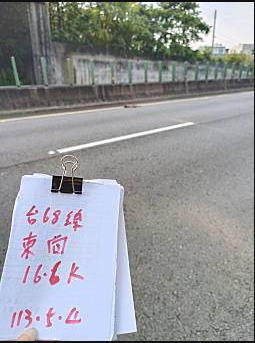 台68線
東向
16.6K
113.5.4